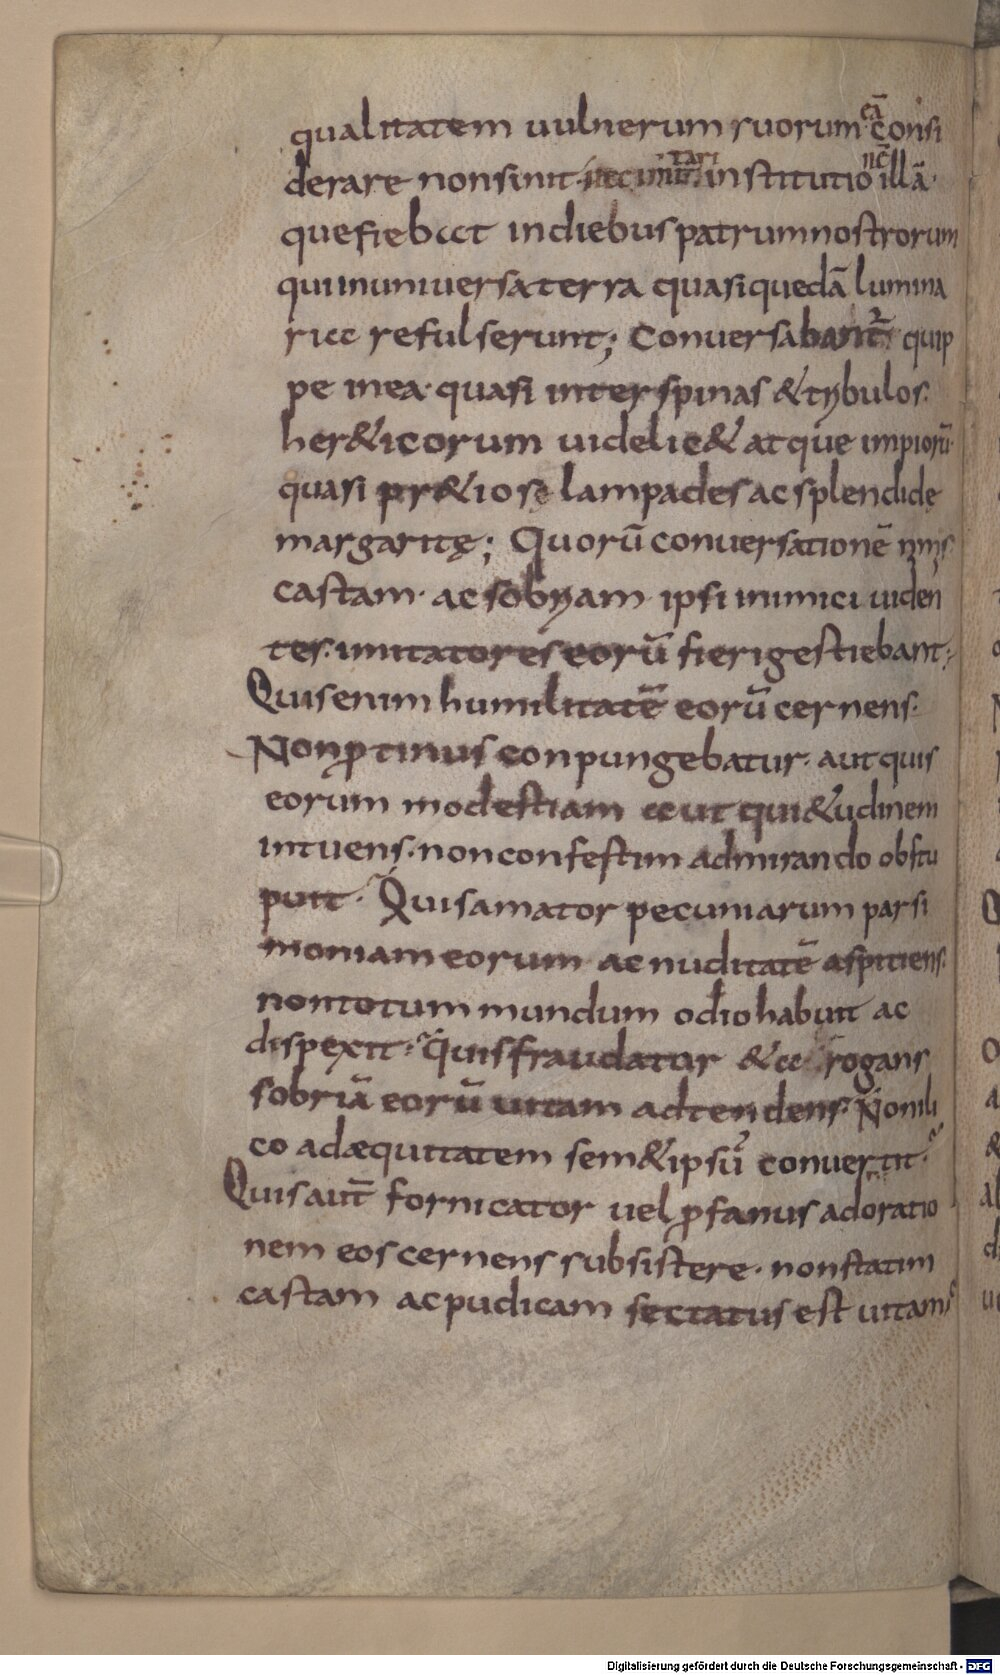 qualitatem uulnerum suorum eā consi
derare non sinit · nec imitari institutio nc̄ illā ·
que fiebat in diebus patrum nostrorum
qui in uniuersa terra quasi quedā lumina
ria refulserunt; Conuersabant᷑ quip
pe in ea · quasi inter spinas & tybulos ·
her&icorum uidelic& atque impiorū ·
quasi pr&iosę lampades ac splendidę
margaritę; Quorū conuersationē nimis
castam · ac sobriam ipsi inimici uiden
tes · imitatores eorū fieri gestiebant;
Quis enim humilitatē eorū cernens ·
Non ꝓtinus conpungebatur · aut quis
eorum modestiam aut qui&udinem
intuens · non confestim admirando obstu
puit · Quis amator pecuniarum parsi
moniam eorum ac nuditatē aspitiens ·
non totum mundum odio habuit ac
dispexit · Quis fraudator & arrogans
sobriā eorū uitam adtendens · Non ili
co ad æquitatem sem&ipsū conuertit ·
Quis aut̄ fornicator uel ꝓfanus adoratio
nem eos cernens subsistere · non statim
castam ac pudicam sectatus est uitam
Digitalisierung gefördert durch die Deutsche Forschungsgemeinschaft - DFG